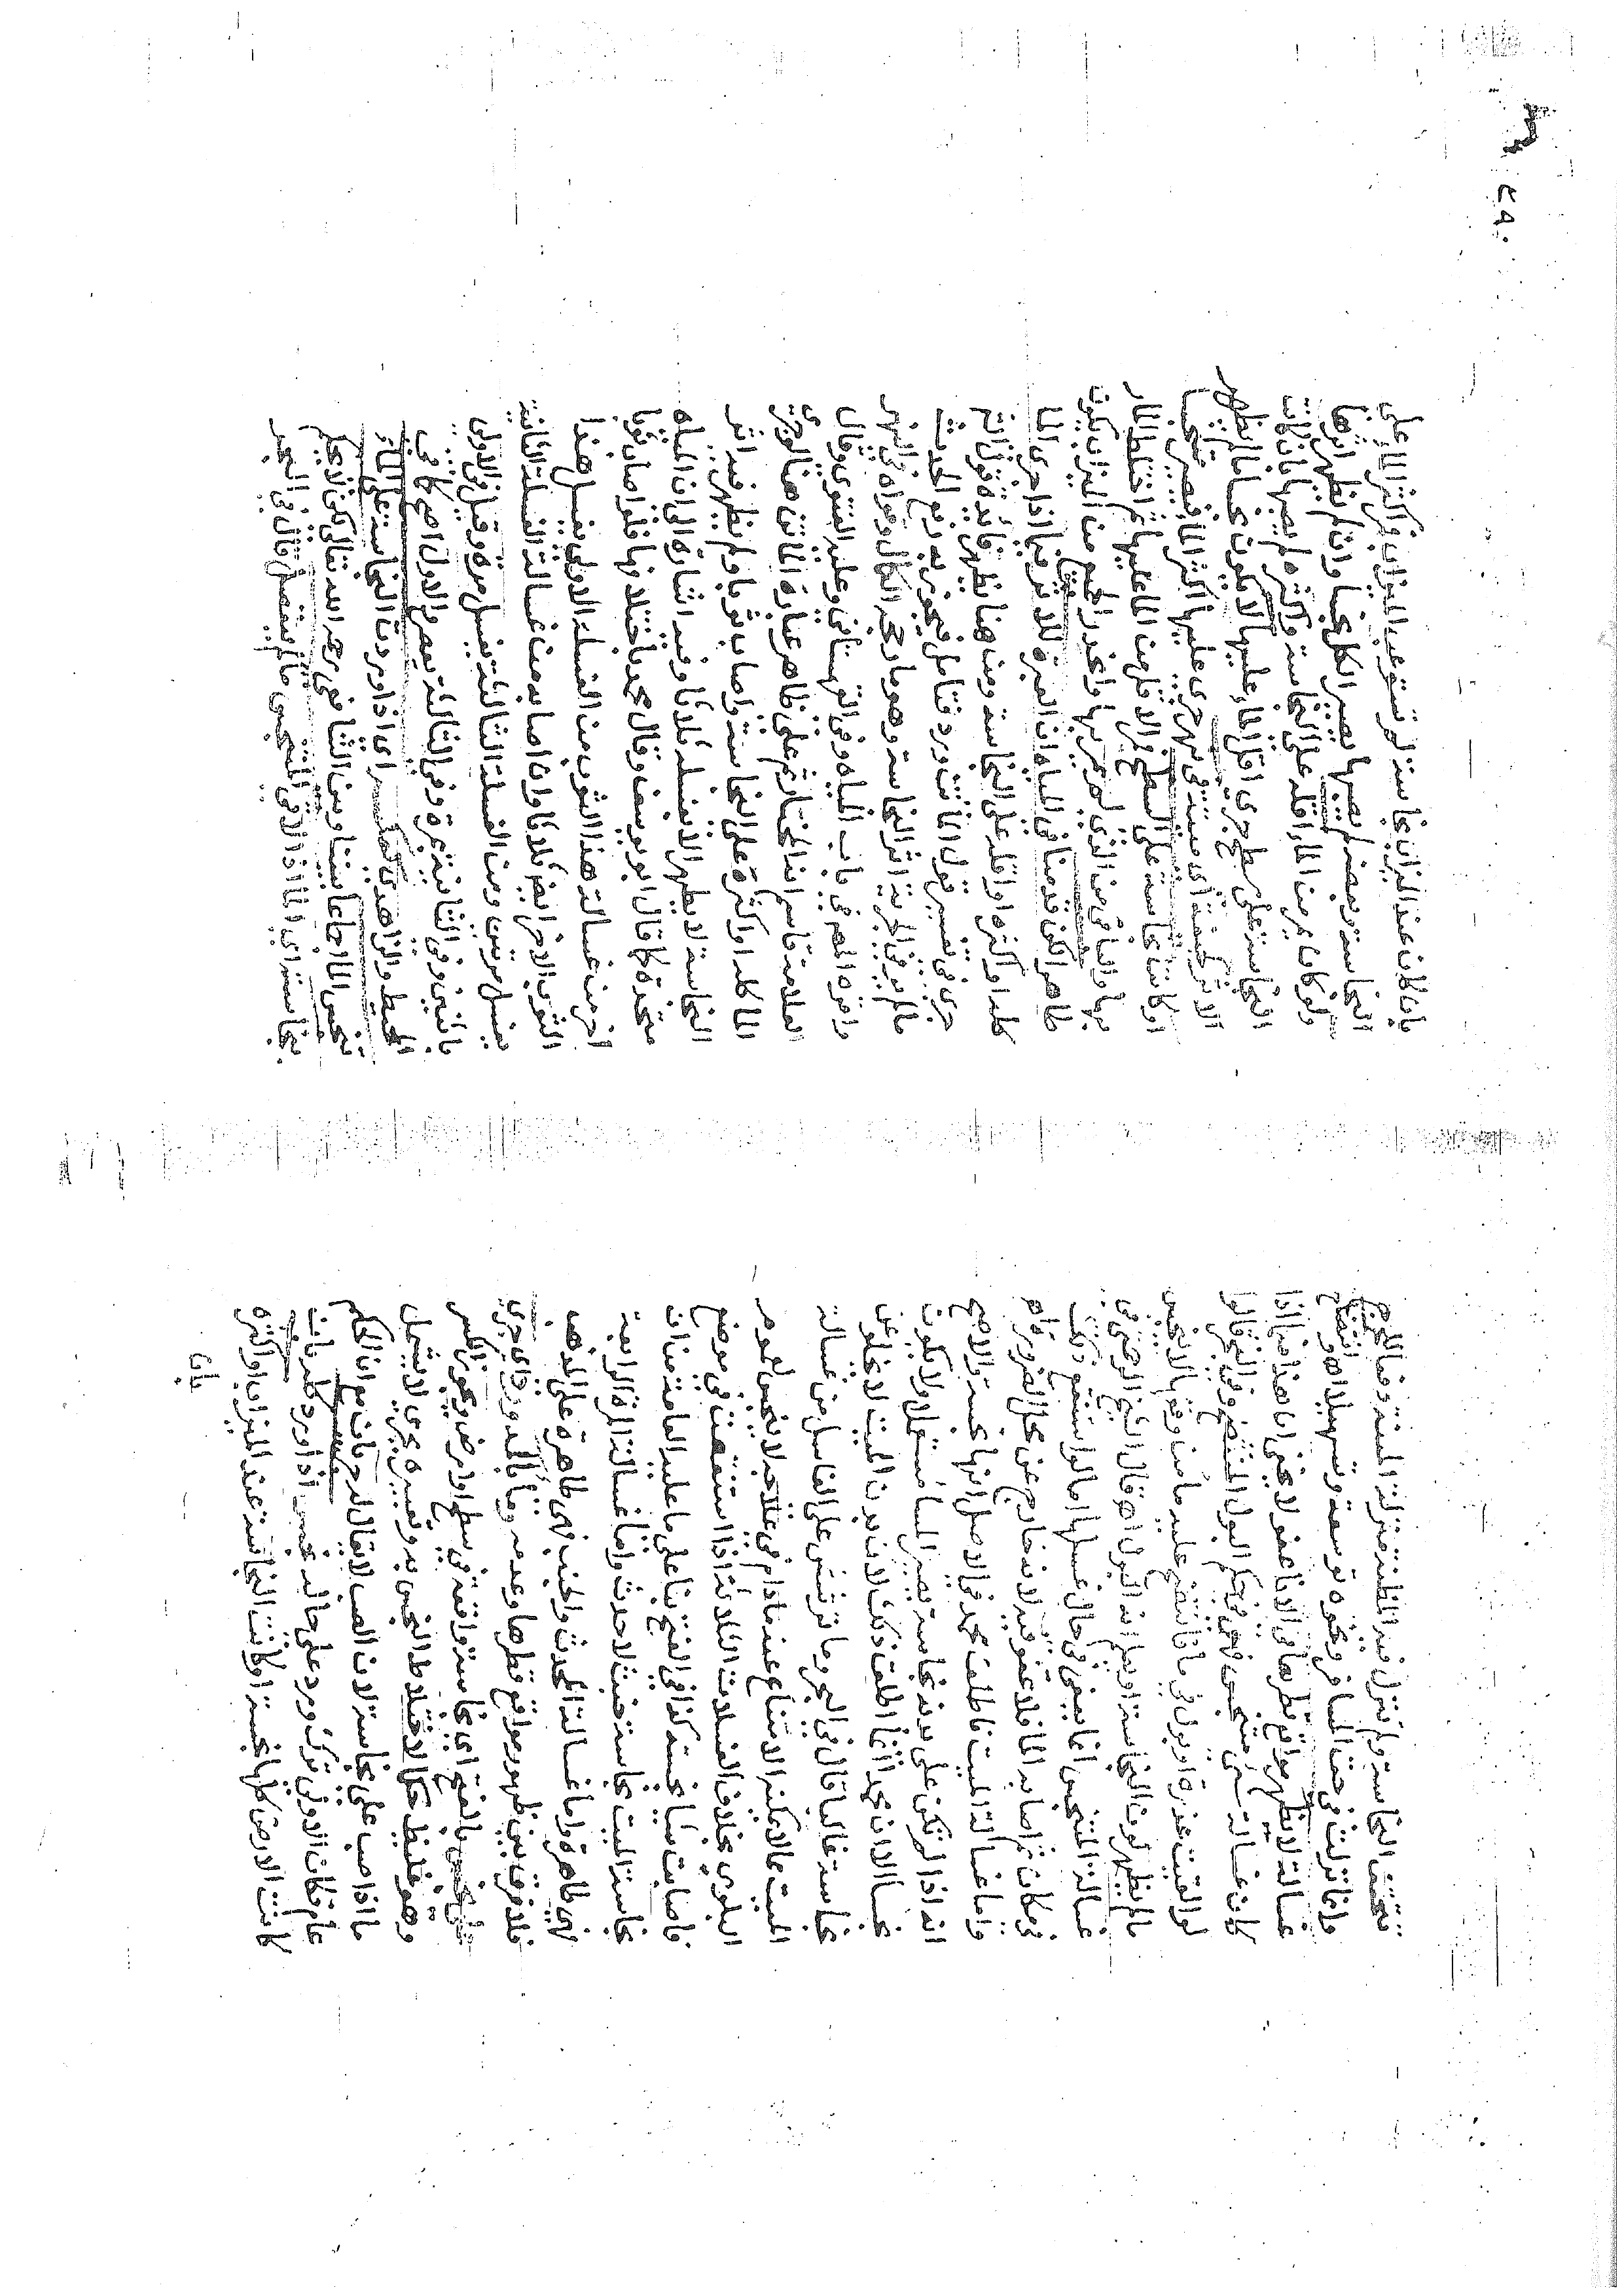 تحققت النجاسة ولم تنزل فيه المظنة منزلة المئنة وفيما
وانما نزلت في حق المسافر ونحوه توسعة وتسهيلا اهـ
غسالة لا تظهر مواقع قطرها في الاناء عفو لا يخفى ان هذا فيما اذا
كان غسالة شيء متنجس فهي في حكم البول المنتضح وفي الفتح قالوا
لو القيت عذرة او بول في ماء فانتضح عليه ماء من وقعها لا ينجس
ما لم يظهر لون النجاسة او يعلم انه البول اهـ قال الشيخ
غسالة المتنجس انما يعفى في حال غسلها اما لو استنقع ذلك
في مكان ثم اصابه الماء فلا عفو فيه لانه خارج عن محل الضرورة اهـ
واما غسالة الميت فاطلق محمد في الاصل انها نجسة والاصح
انه اذا لم يكن على بدنه نجاسة يصير الماء مستعملا ولا يكون
نجسا الا ان محمدا انما اطلق ذلك لان بدن الميت لا يخلو عن
نجاسة غالبا قال في البحر وما ترشش على الغاسل من غسالة
الميت مما لا يمكنه الامتناع عنه ما دام في علاجه لا ينجسه لعموم
البلوى بخلاف الغسلات الثلاثة اذا استنقعت في موضع
فاصابت شيأ نجسته كذا في الفتح بناء على ما عليه العامة من ان
نجاسة الميت نجاسة خبث لا حدث واما غسالة المرة الرابعة
فهي طاهرة واما غسالة المحدث والجنب فهي طاهرة على المذهب
فلا فرق بين ظهور مواقع قطرها وعدمه وماء بالمد ورد اي جرى
على نجس بالفتح اي نجاسة واقعة في سطح او ارض ويجوز الكسر
وهو غليظ حكما لاختلاط النجس به وتعبيره بجرى لا يشمل
ما اذا صب على نجاسة لان الصب لا يقال له جريان مع ان الحكم
عام فكان الاولى تركه ورد على حاله نجس اذا ورد كله بان
كانت الارض كلها نجسة او كانت النجاسة عند الميزاب او اكثره
فان كان
٤٩
بان كان عند الميزاب نجاسة لم تستوعب الميزاب فمر اكثر الماء على
النجاسة وبعضه لم يصبها يصير الكل نجسا وان لم يظهر اثرها
ولو كان ما يمر من الماء اقله على النجاسة واكثره لم يصبها فان كانت
النجاسة على سطح جرى اقل الماء عليها لا يكون نجسا ما لم يظهر
الاثر كجيفة اي ميتة في نهر جرى عليها اكثر الماء فيصير نجسا
او كانت نجاسة على السطح فمر الاقل من الماء عليها ثم اختلط الماء
بها والباقي من الذي لم يمر بها واتخذ راجح من الميزاب يكون
طاهرا لكن قدمنا في المياه ان العبرة للاثر فيما اذا جرى الماء
كله او اكثره او اقله على النجاسة ومن هنا تظهر فائدة قوله انه
جرى في تفسير قول الماتن ورد فتامل فيجوز به رفع الحدث
ما لم ير في الجرية اثر النجاسة وهو ما رجحه الكمال وعزاه في النهر
واقره المص في باب المياه وفي القهستاني وعليه الفتوى وقال
العلامة قاسم انه المختار ثم على ظاهر عبارة الماتن هنا لو جرى
الماء كله او اكثره على النجاسة واصاب ثوبا ولم يظهر فيه اثر
النجاسة لا يطهر الا بغسله ثلاثا وفيه اشارة الى ان المياه
متحدة كما قال ابو يوسف وقال محمد باختلافها فلو اصاب ثوبا
اخر من غسالة هذا الثوب من الغسلة الاولى يغسل هذا
الثوب الاخر ايضا ثلاثا وان اصابه من غسالة الغسلة الثانية
يغسل مرتين ومن الغسلة الثالثة يغسل مرة وقيل في الاولى
باثنتين وفي الثانية بمرة وفي الثالثة بعصر والاول اصح كما في
المحيط والزاهدي كعكسه اي اذا وردت النجاسة على الماء
تنجس الماء اجماعا بيننا وبين الشافعي رحمه الله تعالى لكن لا يحكم
بنجاسته اي الماء اذا لاقى المتنجس ما لم ينفصل قال في البحر